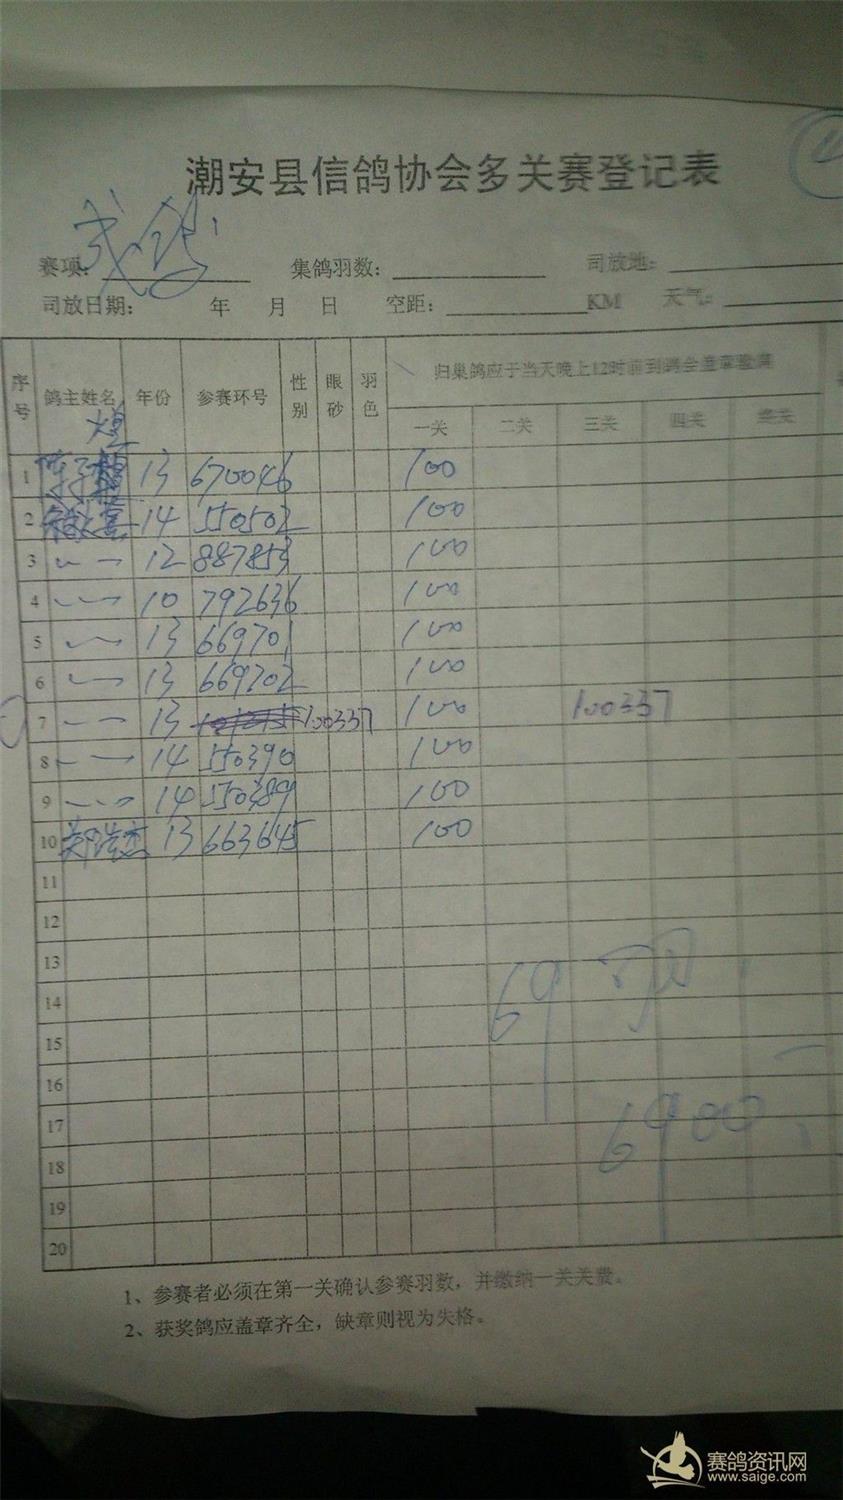 潮安县信鸽协会多关赛登记表
赛项: 集鸽羽数: 司放地:
司放日期: 年 月 日 空距: KM 天气:
序号 鸽主姓名 年份 参赛环号 性别 眼砂 羽色 归巢鸽应于当天晚上12时前到鸽会盖章验鸽
一关 二关 三关 四关
1 13 670046 100
2 14 550502 100
3 12 887853 100
4 10 792636 100
5 13 669701 100
6 13 669702 100
7 13 100337 100 100337
8 14 550390 100
9 14 550389 100
10 郑浩杰 13 663645 100
11
12
13
14
15
16
17
18
19
20
69羽
6900
1、参赛者必须在第一关确认参赛羽数，并缴纳一关关费。
2、获奖鸽应盖章齐全，缺章则视为失格。
赛鸽资讯网
www.saige.com